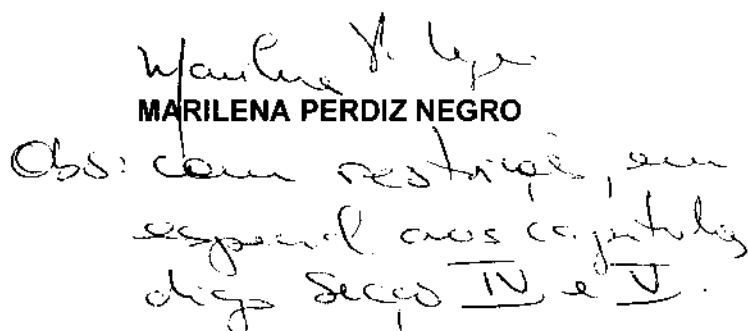 Marilena P. Negro
MARILENA PERDIZ NEGRO
Obs: com restrição, em
especial aos capítulos
digo Secção IV e V.